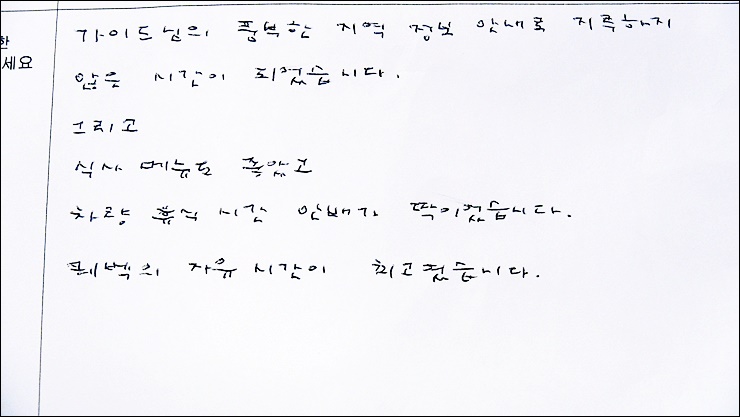 한
세요
가이드님의 풍부한 지역 정보 안내로 지루하지
않은 시간이 되었습니다.
그리고
식사 메뉴도 좋았고
차량 휴식 시간 안배가 딱이었습니다.
자유시간이 최고였습니다.